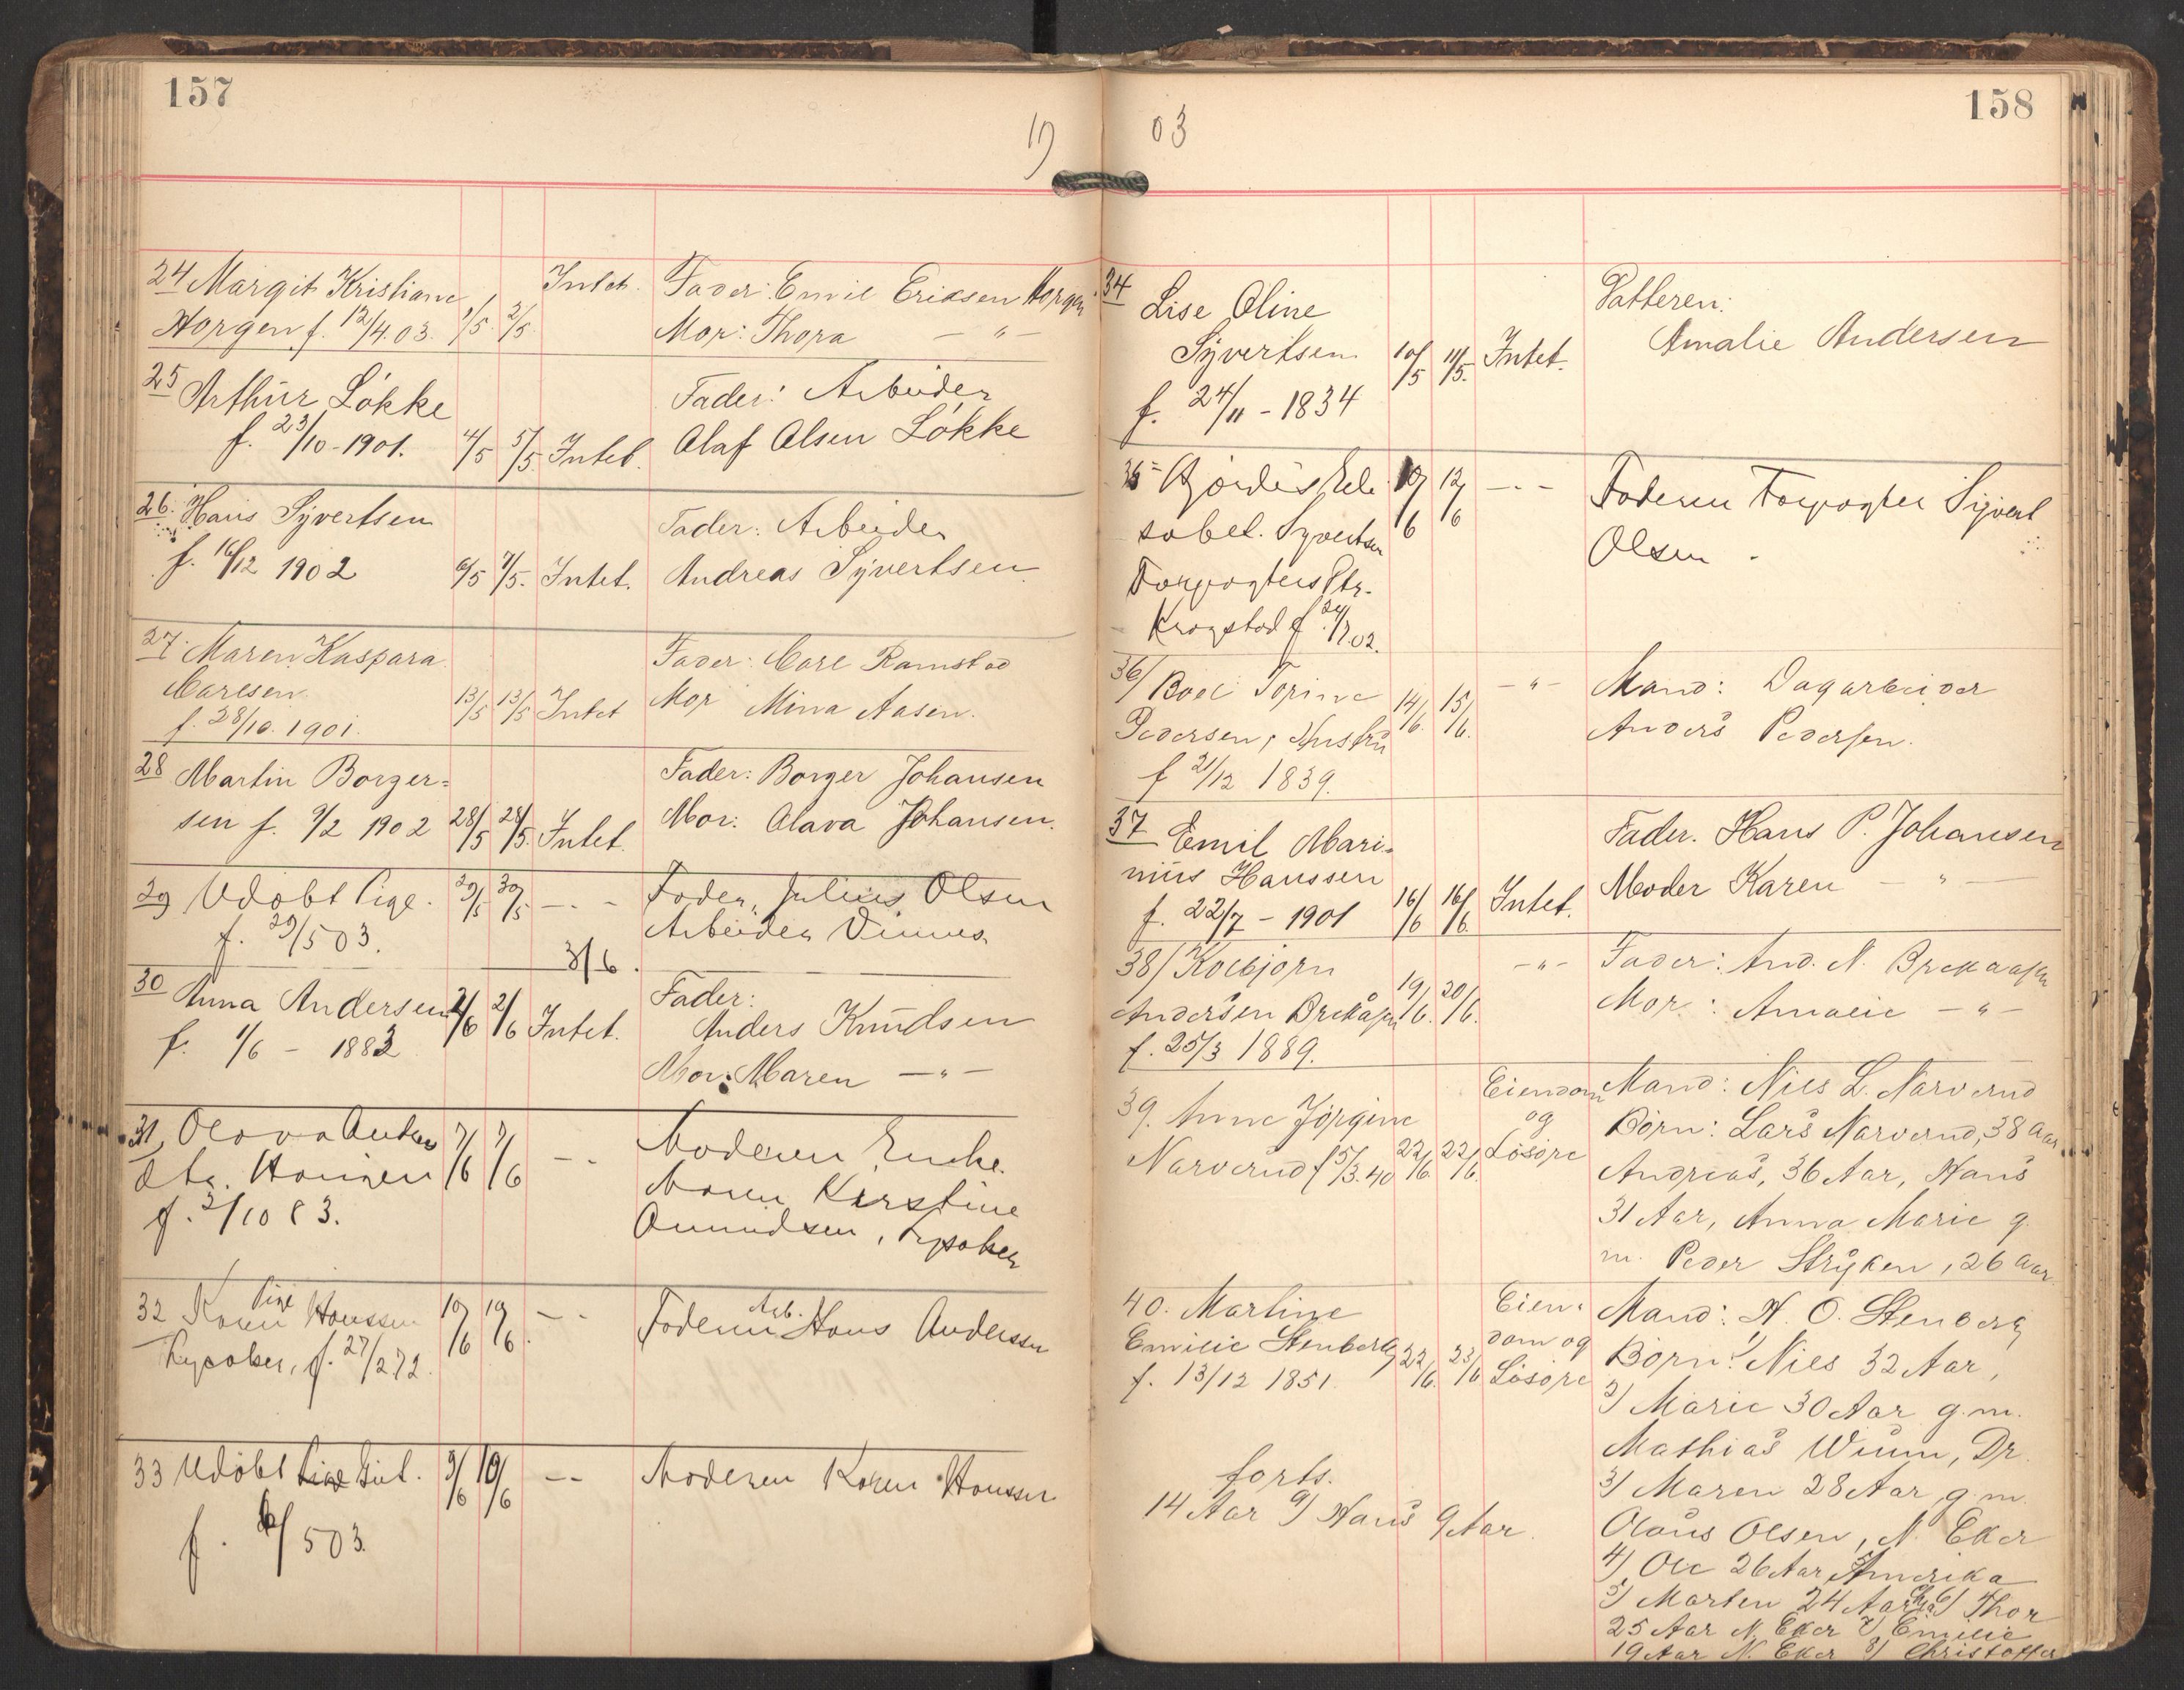 157
19
24 Margit Kristiane
Horgen f. 12/4.03. 1/5. 2/5. Intet. Fader: Emil Eriksen Horgen
Mor: Thora — " —
25 Arthur Løkke
f. 23/10-1901. 4/5 5/5. Intet. Fader: Arbeider
Olaf Olsen Løkke
26. Hans Syvertsen
f. 16/12 1902 6/5 7/5. Intet. Fader: Arbeider
Andreas Syvertsen
27. Maren Kaspara
Carlsen
f. 28/10. 1901. 13/5 13/5 Intet Fader: Carl Ramstad
Mor Mina Aasen.
28 Martin Borger=
sen f. 9/2 1902 28/5 28/5. Intet. Fader: Borger Johansen
Mor: Olava Johansen.
29 Udøbt Pige. 29/5 30/5 — . - Fader, Julius Olsen
f. 29/5 03. Arbeider
3/6.
30 Anna Andersen 2/6 2/6 Intet. Fader:
f. 1/6 - 1883 Anders Knudsen
Mor: Maren — " —
31, Olava
f. 2/10 83. 7/6 7/6 - - Moderen Enke
Maren Kirstine
32 Pige
Karen Hanssen 10/6 10/6. - - Faderen Arb. Hans Anderssen
f. 27/2 72.
33 Udøbt 9/6 10/6 - - Moderen Karen Hanssen
f. 6/5 03.
158
03
34 Lise Oline
Syvertsen 10/5 11/5. Intet.
f. 24/11 - 1834
Datteren:
Amalie Andersen
35 Hjørdis Eli
sabet. Syvertsen 12/6 — . - Faderen Forpagter Syvert
Forpagters Dtr. Olsen -
Krogstad f.
36/ Boel Torine 14/6. 15/6. — " — Mand: Dagarbeider
Pedersen, Hustru Anders Pedersen.
f 21/12 1839.
37 Emil Mari-
nius Hanssen 16/6 16/6. Intet. Fader. Hans P. Johansen
f. 22/7 - 1901 Moder Karen — " —
38/ Kolbjørn 19/6. 20/6. — " — Fader: And. N. Brekaasen
Andersen Brekåsen Mor: Amalie — " —
f. 25/3 1889.
39. Anne Jørgine Eiendom Mand: Nils L. Narverud
og Børn: Lars Narverud, 38 Aar
Narverud f 5/3.40 22/6. 22/6. Løsøre Andreas, 36 Aar, Hans
31 Aar, Anna Marie g.
m. Peder Stryken, 26 Aar.
40. Martine Eien- Mand: H. O. Stenberg
Emilie Stenberg 22/6. 23/6 dom og Børn: 1) Nils 32 Aar,
f. 13/12 1851. Løsøre 2) Marie 30 Aar g.m.
Mathias Wium, Dr.
3) Maren 28 Aar g.m.
Olaus Olsen, N. Eker
4) Ole 26 Aar Amerika
5) Morten 24 Aar 6) Thor
25 Aar N. Eker 7) Emilie
19 Aar N. Eker 8) Christoffer
forts.
14 Aar 9) Hans 9 Aar.